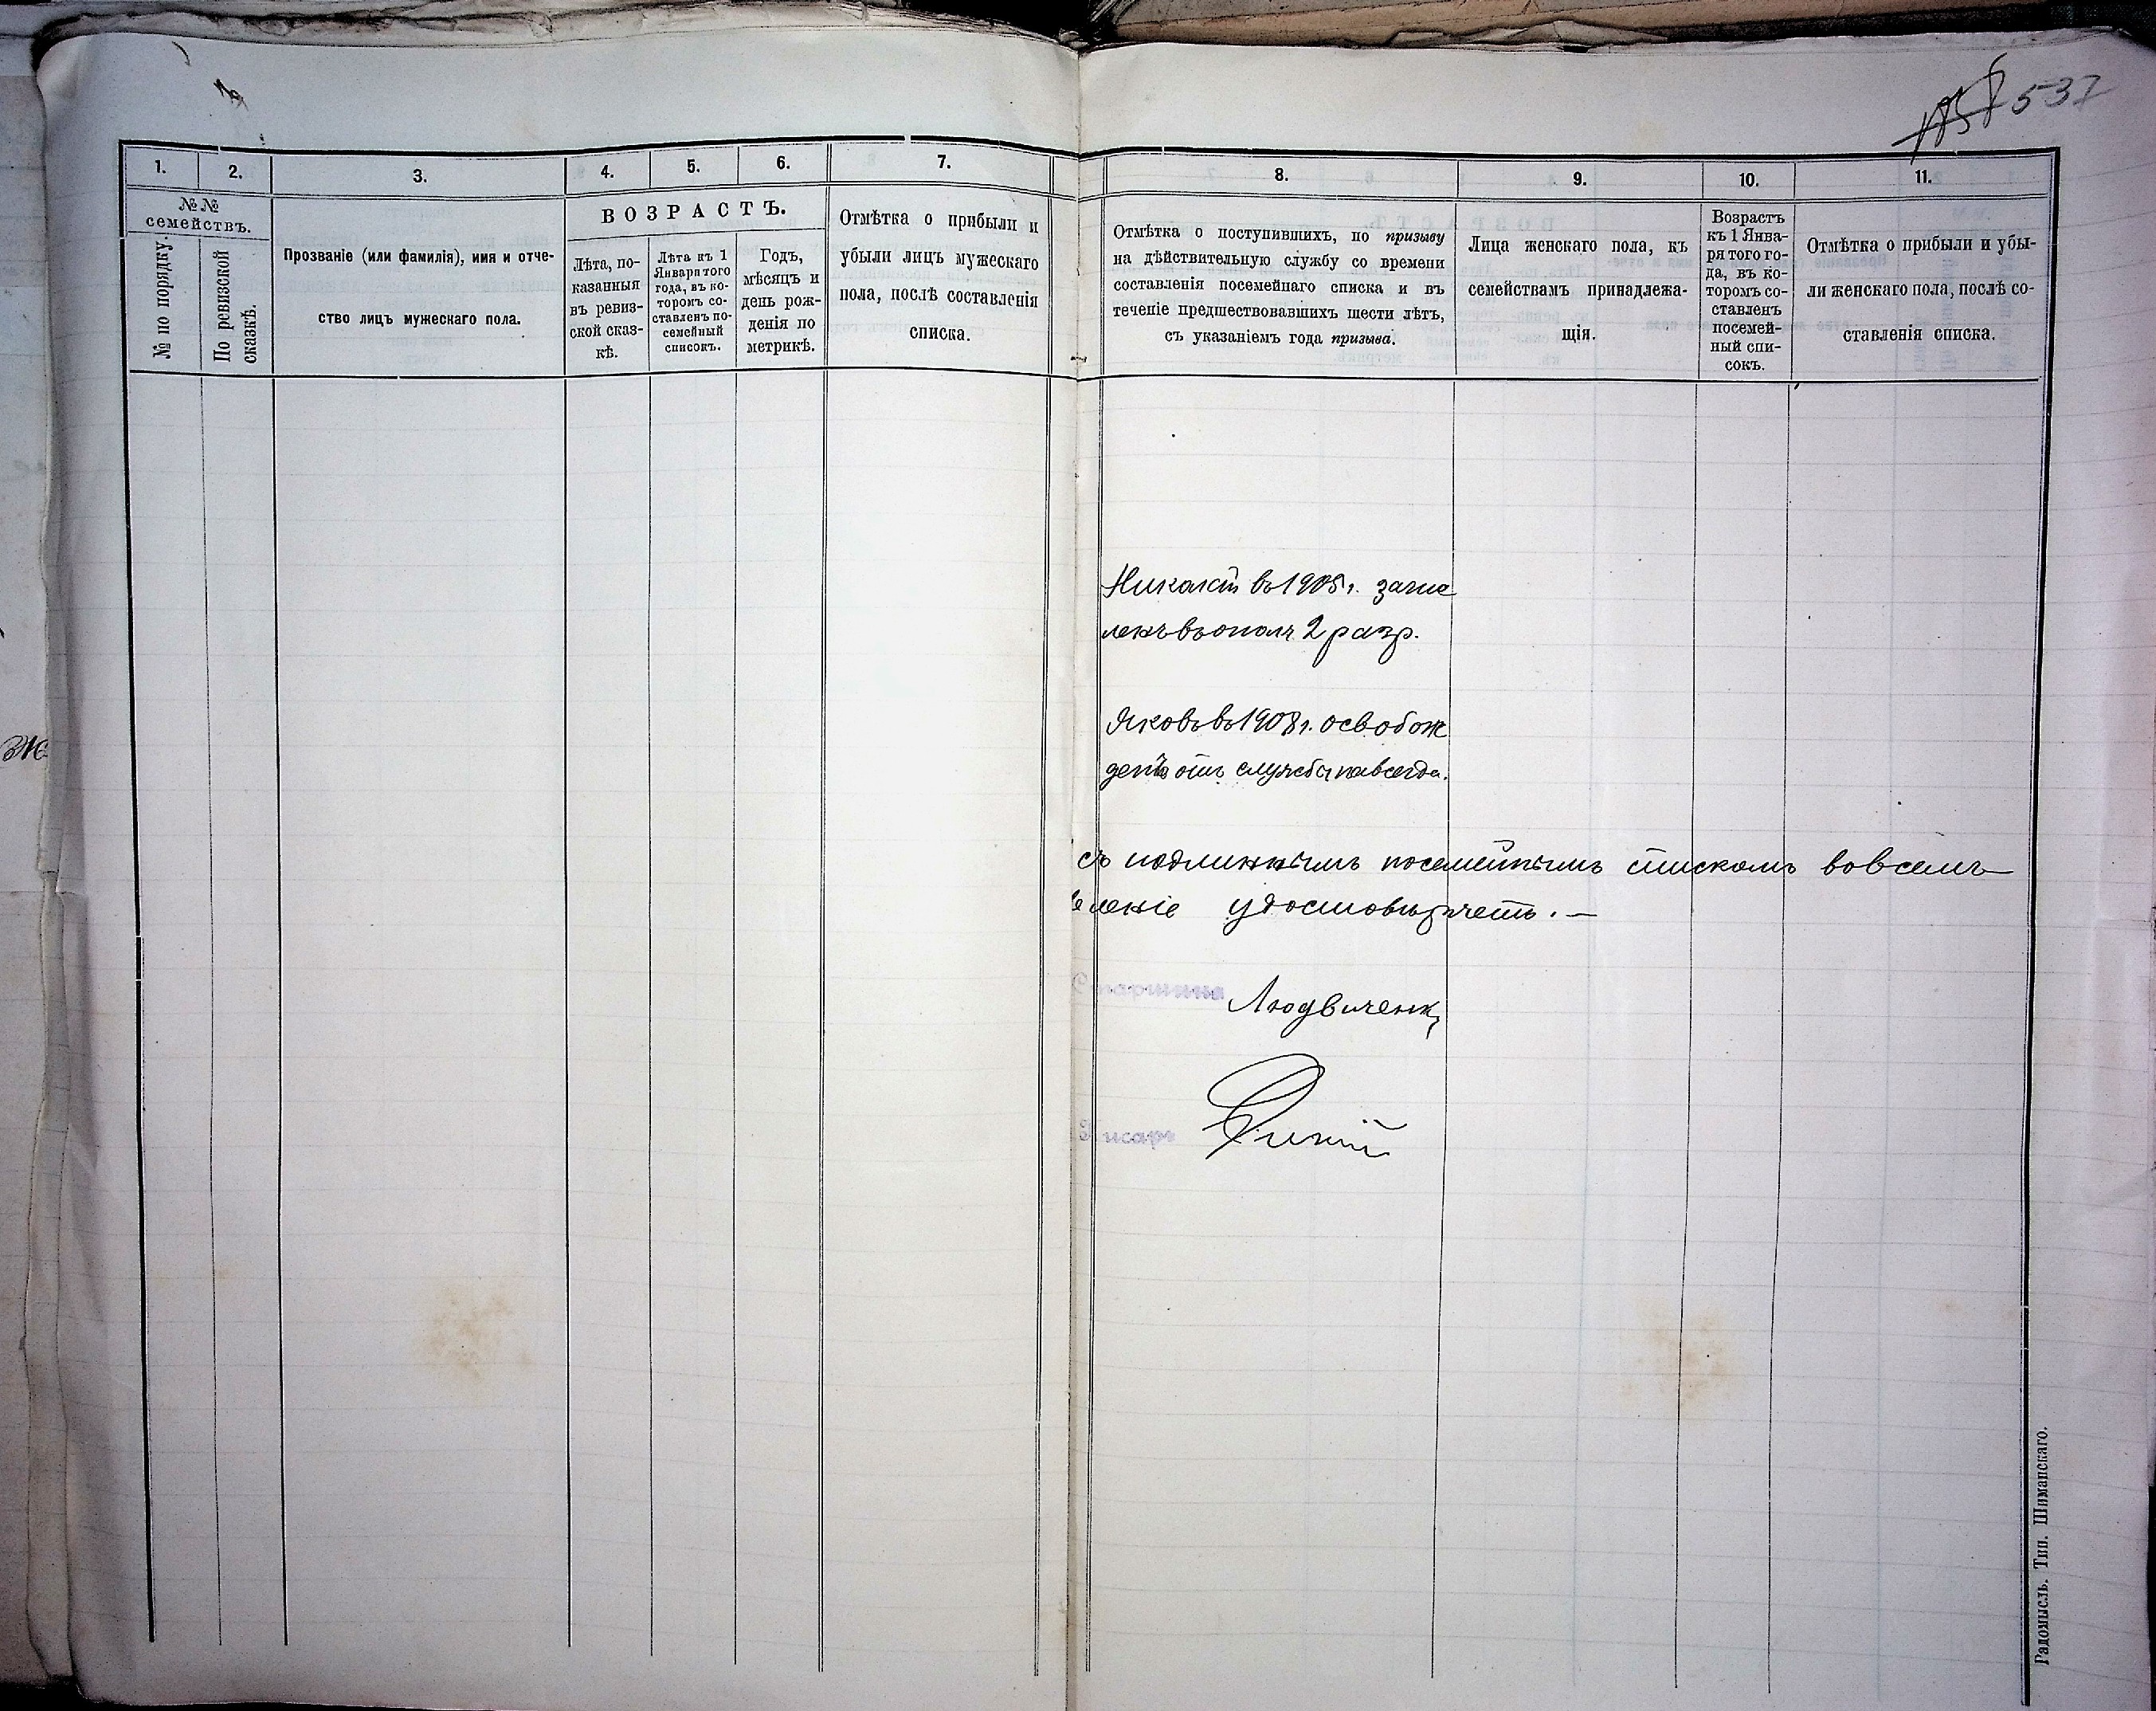 537
1.
2.
3.
4.
5.
6.
7.
8.
9.
10.
11.
№№
семействъ.
№ по порядку.
По ревизской
сказкѣ.
Прозваніе (или фамилія), имя и отче-
ство лицъ мужескаго пола.
ВОЗРАСТЪ.
Лѣта, по-
казанныя
въ ревиз-
ской сказ-
кѣ.
Лѣта къ 1
Января того
года, въ ко-
торомъ со-
ставленъ по-
семейный
списокъ.
Годъ,
мѣсяцъ и
день рож-
денія по
метрикѣ.
Отмѣтка о прибыли и
убыли лицъ мужескаго
пола, послѣ составленія
списка.
Отмѣтка о поступившихъ, по призыву
на дѣйствительную службу со времени
составленія посемейнаго списка и въ
теченіе предшествовавшихъ шести лѣтъ,
съ указаніемъ года призыва.
Лица женскаго пола, къ
семействамъ принадлежа-
щія.
Возрастъ
къ 1 Янва-
ря того го-
да, въ ко-
торомъ со-
ставленъ
посемей-
ный спи-
сокъ.
Отмѣтка о прибыли и убы-
ли женскаго пола, послѣ со-
ставленія списка.
въ 1905 г. зачис
ленъ въ ополч 2 разр.
Яковъ въ 1908 г. освобож
денъ отъ службы навсегда.
съ подлиннымъ посемейнымъ спискомъ во всемъ
леніе удостовѣряетъ. —
Старшина
Писарь
Радомысль. Тип. Шиманскаго.